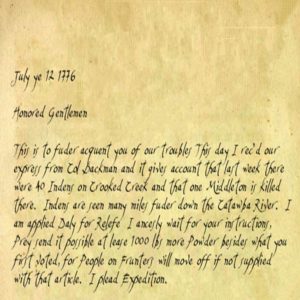 July ye 12 1776
Honored Gentlemen
This is to fuder acquent you of our troubles This day I rec'd our
express from Col Backman and it gives account that last week there
were 40 Indens on Crooked Creek and that one Middleton is killed
there. Indens are seen many miles fuder down the Catawba River. I
am applied Daly for Relefe I ancesly wait for your instructions,
Prey send it possible at lease 1000 lbs more Powder besides what you
first Voted, for People on Frunters will move off if not supplied
with that article. I plead Expedition.